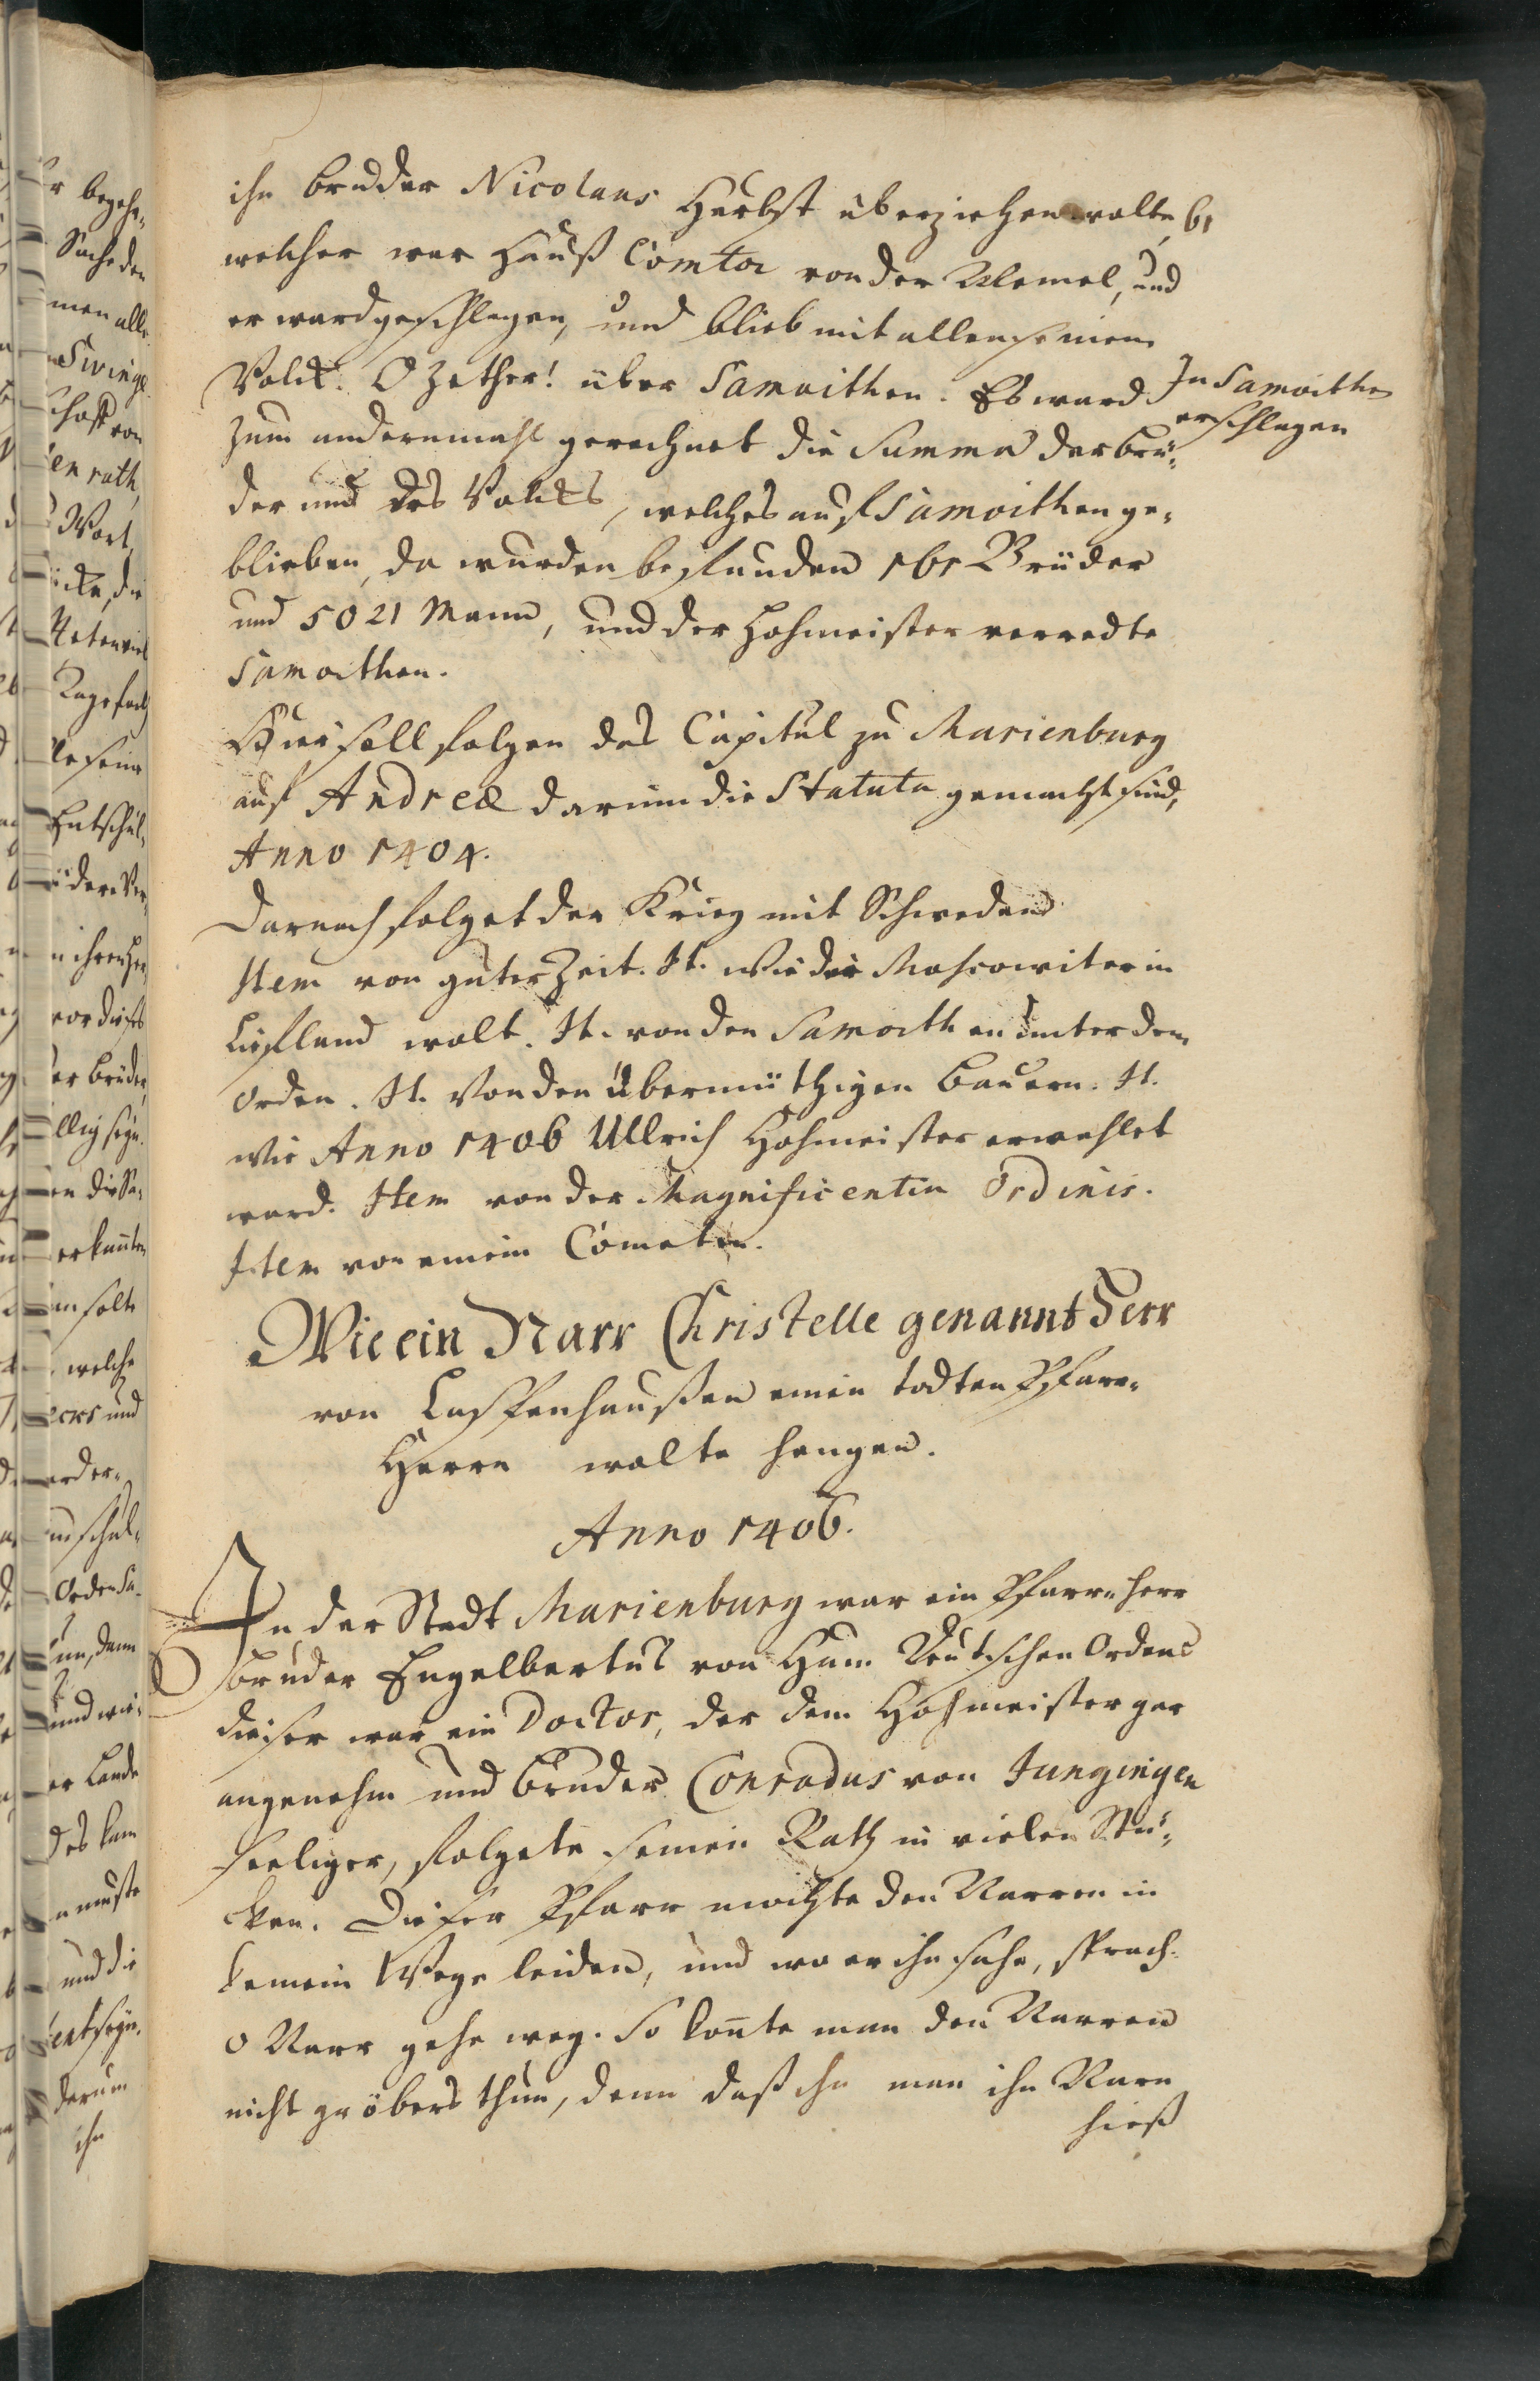 ihn bruder Nicolaus Herbst überziehen wolte, 61
welcher war Hauß Comtor von der Memel, und
er ward geschlagen, und blieb mit allen seinem
Volck. O Zether! über Samoithen. Es ward
In Samoithen
erschlagen
zum andernmahl gerechnet die Summa der brü-
der und des Volcks, welches auf Samoithen ge-
blieben, da wurden befunden 161 Brüder
und 5021 Mann, und der Hohmeister verredte
Samoithen.
Hier soll folgen das Capitul zu Marienburg
auf Andreæ darinn die Statuta gemacht sind,
Anno 1404.
Darnach folget der Krieg mit Schweden
Item von guter Zeit. It. wie die Moscowiter in
Liefland wolt. It. von den Samoithen unter dem
Orden. It. Von den übermüthigen Bauern. It.
wie Anno 1406 Ullrich Hohmeister erwehlet
ward. Item von der Magnificentia Ordinis.
Item von einem Cometen.
Wie ein Narr Christelle genannt Herr
von einen todten Pfarr-
Herrn wolte hengen.
Anno 1406.
In der Stadt Marienburg war ein Pfarr-Herr
bruder Engelbertus von Ham Teutschen Ordens
dieser war ein Doctor, der dem Hohmeister gar
angenehm und bruder Conradus von Jungingen
seeliger, folgete seinen Rath in vielen Stü-
cken. Dieser Pfarr mochte den Narren in
keinem Wege leiden, und wo er ihn sahe, sprach
o Narr gehe weg. So konte man den Narren
nicht gröbers thun, denn daß ihn man ihn Narr
hieß